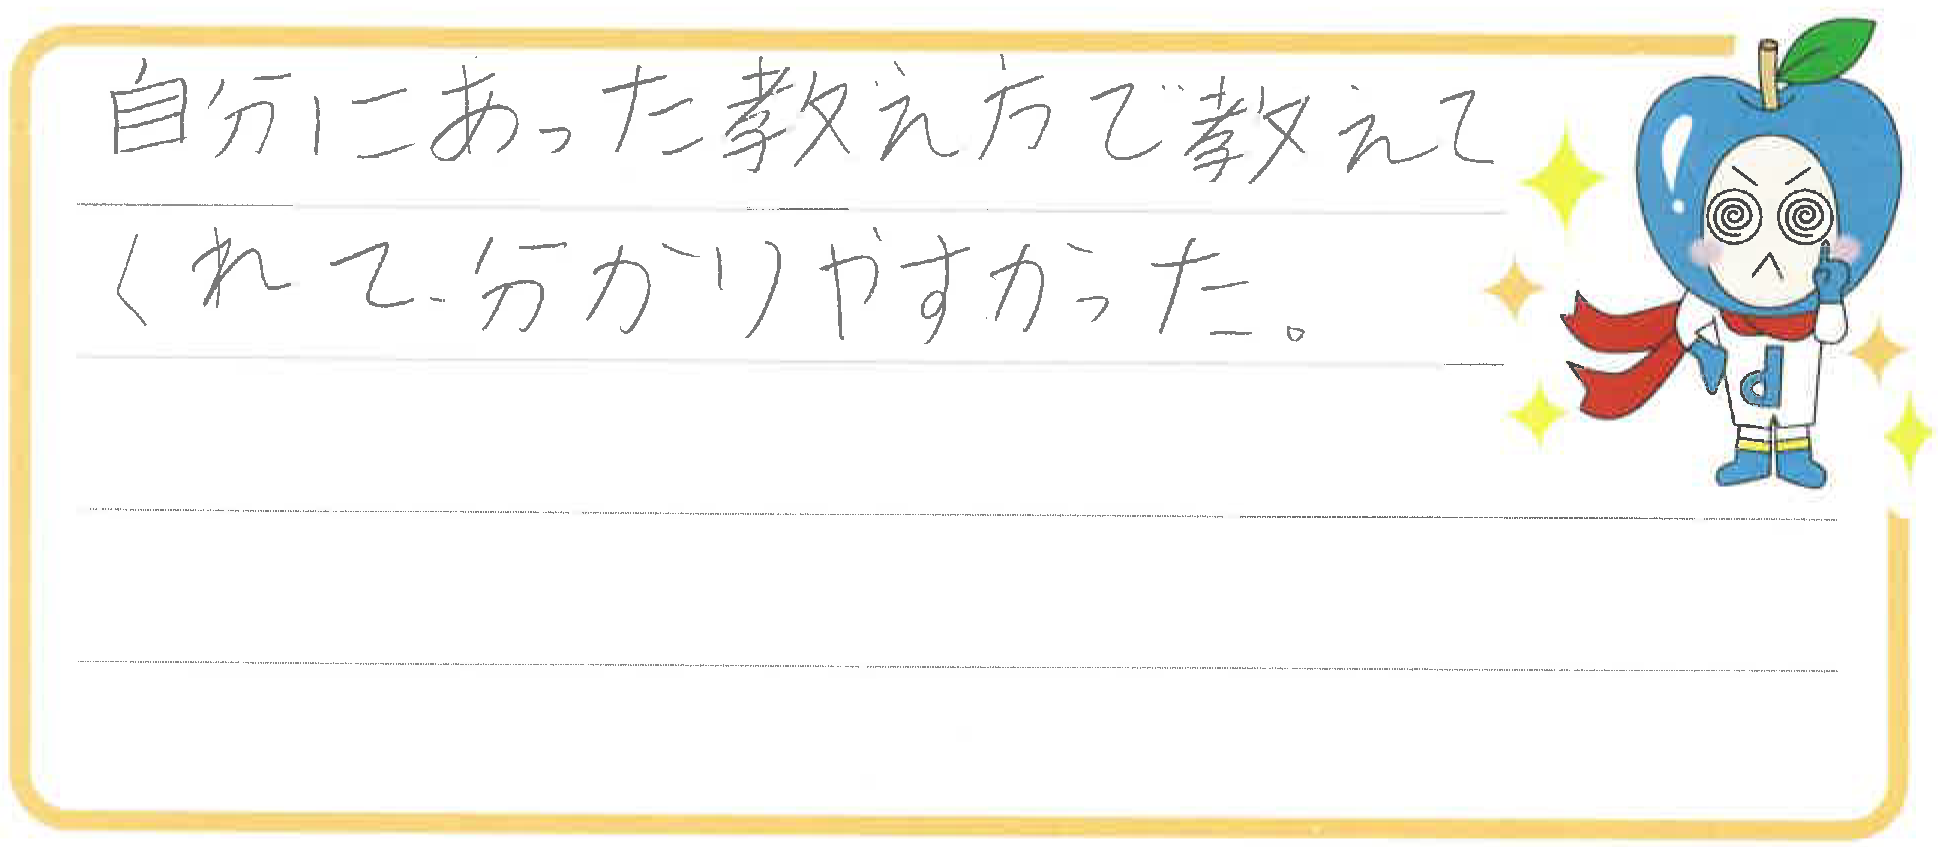 自分にあった教え方で教えて
くれて分かりやすかった。
d